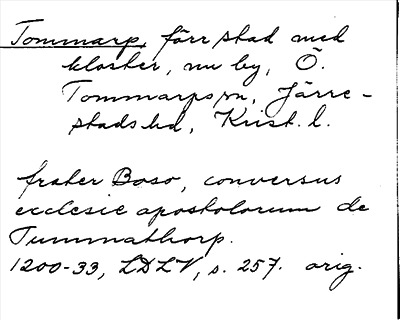 Tommarp, förr stad med
kloster, nu by, Ö.
Tommarps sn, Järre-
stads hd, Krist. l.
frater Boso, conversus
ecclesie apostolorum de
Tummathorp.
1200-33, LDLV, s. 257. orig.